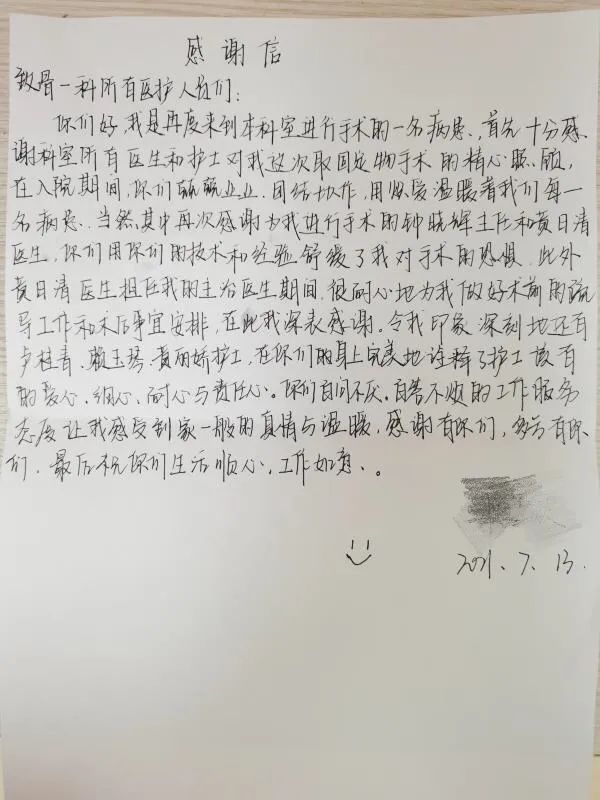 感谢信
致骨一科所有医护人员们：
你们好，我是再度来到本科室进行手术的一名病患，首先十分感
谢科室所有医生和护士对我这次取固定物手术的精心照顾，
在入院期间，你们兢兢业业、团结协作，用点爱温暖着我们每一
名病患。当然其中再次感谢为我进行手术的钟晓辉主任和黄日清
医生，你们用你们的技术和经验舒缓了我对手术的恐惧，此外
黄日清医生担任我的主治医生期间，很耐心地为我做好术前的疏
导工作和术后事宜安排，在此我深表感谢。令我印象深刻地还有
卢桂青、赖玉琴、黄丽娇护士，在你们的身上完美地诠释了护士该有
的爱心、细心、耐心与责任心。你们百问不厌，百答不烦的工作服务
态度让我感受到家一般的真情与温暖，感谢有你们，多亏有你
们，最后祝你们生活顺心，工作如意、。
2021、7、13